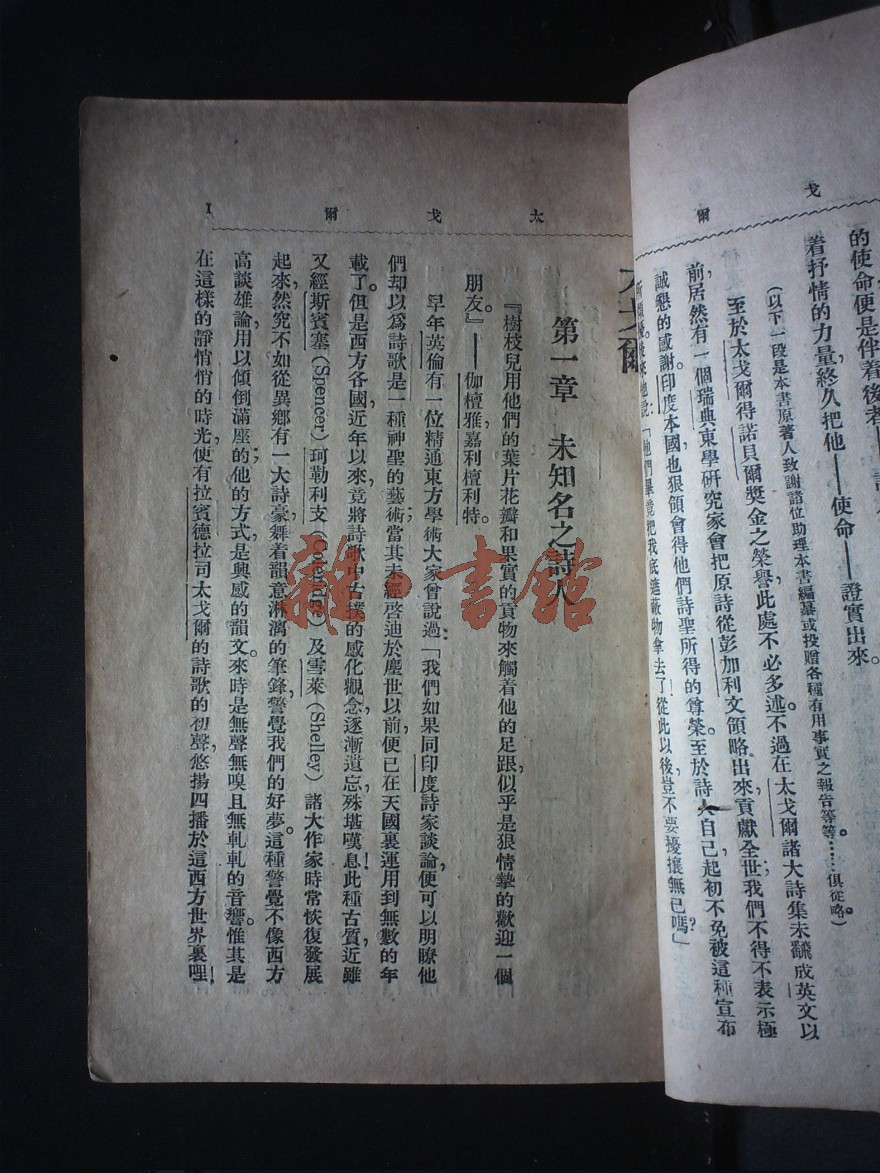 戈爾
的使命便是伴着後者
着抒情的力量終久把他——使命——證實出來。
（以下一段是本書原著人致謝諸位助理本書編纂或投贈各種有用事實之報告等等……俱從略。）
至於太戈爾得諾貝爾獎金之榮譽，此處不必多述。不過在太戈爾諸大詩集未飜成英文以
前，居然有一個瑞典東學研究家會把原詩從彭加利文領略出來，貢獻全世；我們不得不表示極
誠懇的感謝。印度本國也狠領會得他們詩聖所得的尊榮。至於詩人自己起初不免被這種宣布
說：「他們畢竟把我底遮蔽物拿去了，從此以後豈不要擾攘無已嗎？」
太戈爾
1
第一章　未知名之詩人
『樹枝兒用他們的葉片花瓣和果實的貢物來觸着他的足跟，似乎是狠情摯的歡迎一個
朋友。』——伽檀雅嘉利檀利特。
早年英倫有一位精通東方學術大家曾說過：「我們如果同印度詩家談論，便可以明瞭他
們却以爲詩歌是一種神聖的藝術，當其未經啓迪於塵世以前，便已在天國裏運用到無數的年
載了。但是西方各國，近年以來，竟將詩歌中古樸的感化觀念，逐漸遺忘，殊堪嘆息！此種古質，近雖
又經斯賓塞（Spencer）珂勒利支（Coleridge）及雪萊（Shelley）諸大作家時常恢復發展
起來，然究不如從異鄉有一大詩豪舞着韻意淋漓的筆鋒，警覺我們的好夢。這種警覺不像西方
高談雄論，用以傾倒滿座的；他的方式，是興感的韻文；來時是無聲無嗅，且無軋軋的音響。惟其是
在這樣的靜悄悄的時光，便有拉賓德拉司太戈爾的詩歌的初聲，悠揚四播於這西方世界裏哩！
雜·書館